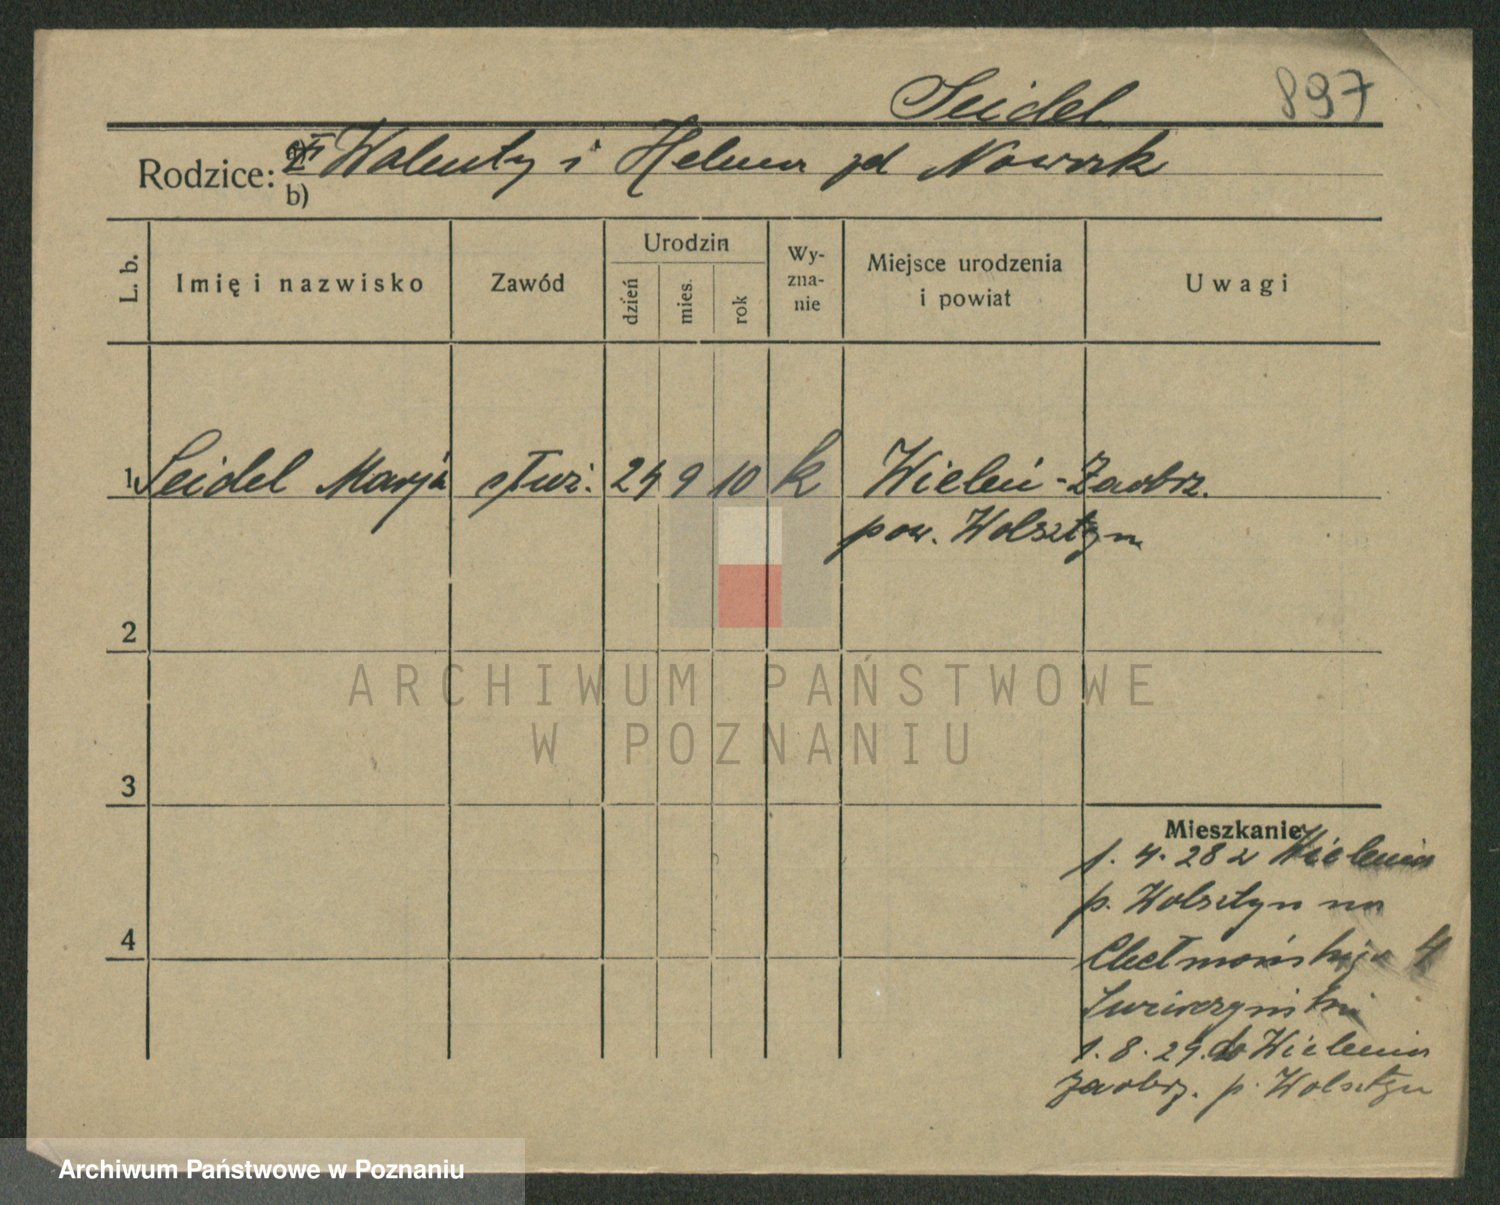 Seidel 897
Rodzice: a) Walenty i Helena zd Nowak
b)
L. b. Imię i nazwisko Zawód Urodzin dzień mies. rok Wy-zna-nie Miejsce urodzenia i powiat Uwagi
1 Seidel Marja służ. 24 9 10 k Wieleń-Zaobrz.
pow. Wolsztyn
2
ARCHIWUM PAŃSTWOWE
W POZNANIU
3
Mieszkanie
1. 4. 28 z Wielenia
p. Wolsztyn na
4
Chełmońskiego 4
1. 8. 29. do Wielenia
Zaobrz. p. Wolsztyn
Archiwum Państwowe w Poznaniu